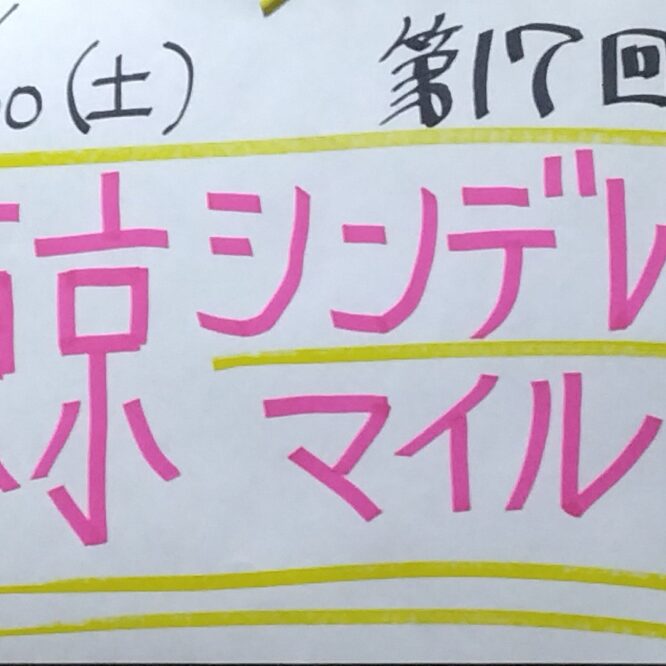 0(土) 第17回
京シンデレ
マイル